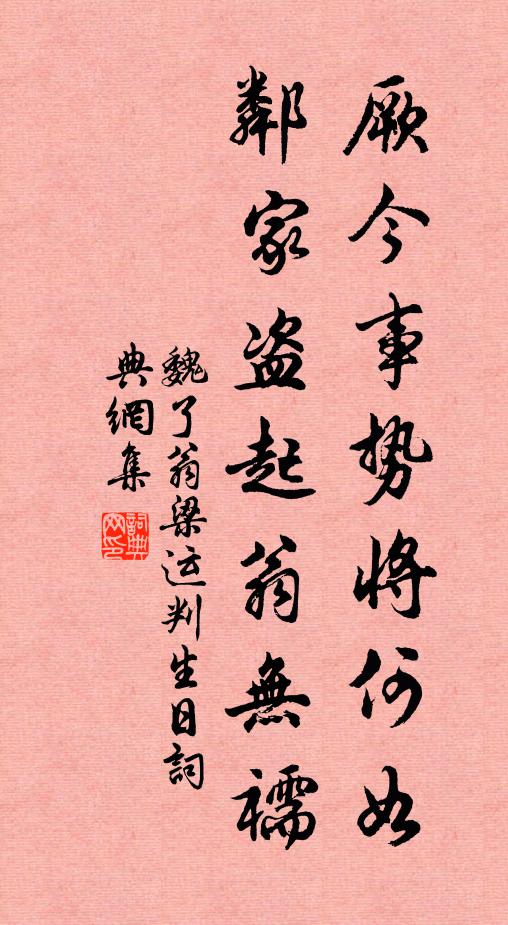 厥今事势將何如
鄰家盗起翁無襦
魏了翁梁运判生日詞
典網集
詞典
网印